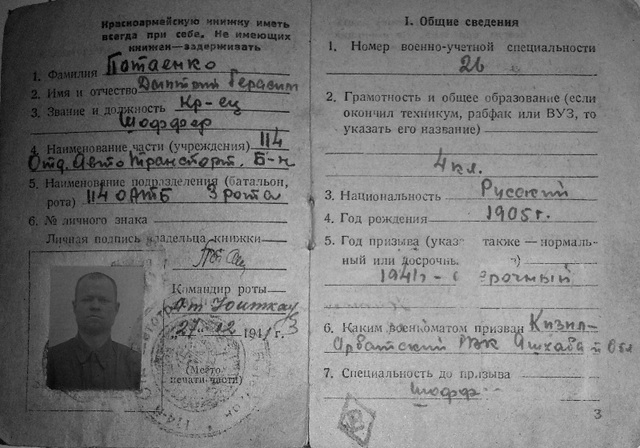 Красноармейскую книжку иметь
всегда при себе. Не имеющих
книжек—задерживать
1. Фамилия Потаенко
2. Имя и отчество
3. Звание и должность Кр-ец
Шоффер
4. Наименование части (учреждения) 114
Отд. Авто Транспорт. Б-н
5. Наименование подразделения (батальон,
рота) 114 ОАТБ 3 рота
6. № личного знака
Личная подпись владельца книжки
Командир роты
27.12 1941 г.
(Место
печати части)
I. Общие сведения
1. Номер военно-учетной специальности
26
2. Грамотность и общее образование (если
окончил техникум, рабфак или ВУЗ, то
указать его название)
4 кл.
3. Национальность Русский
4. Год рождения 1905 г.
5. Год призыва (указ также — нормаль-
ный или досрочный)
1941
6. Каким военкоматом призван Кизил-
Арватский РВК
7. Специальность до призыва
шофф
3